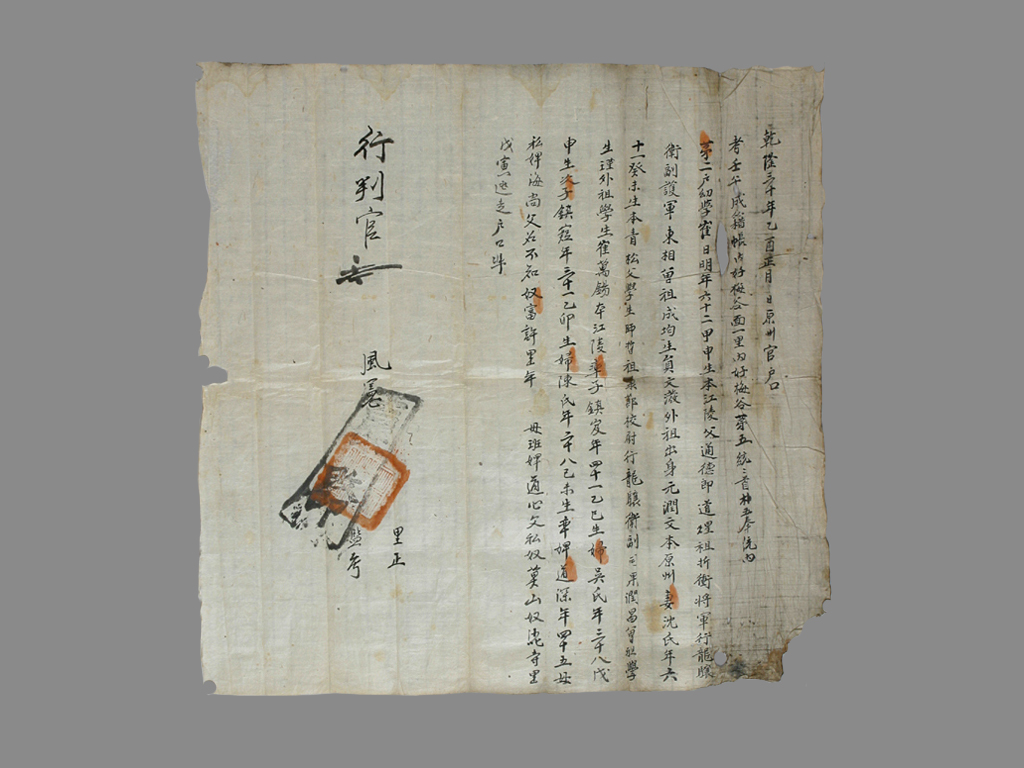 乾隆三十年乙酉正月 日原州官戶口
者壬午成籍帳內好梅谷面一里內好梅谷第五統統首朴玉奉統內
第二戶幼學崔日明年六十二甲申生本江陵父通德郎道理祖折衝將軍行龍驤
衛副護軍東相曾祖成均生員文濊外祖出身元潤文本原州妻沈氏年六
十一癸未生本青松父學生師哲祖秉節校尉行龍驤衛副司果潤昌曾祖學
生瑾外祖學生崔萬錫本江陵率子鎮岌年四十一乙巳生婦吳氏年三十八戊
申生次子鎮 年三十一乙卯生婦陳氏年二十八己未生率婢道深年四十五母
私婢海尚父名不知奴富許里年 母班婢道心父私奴莫山奴 奇里
戊寅逃走戶口準
行判官 無
風憲
里正
監考